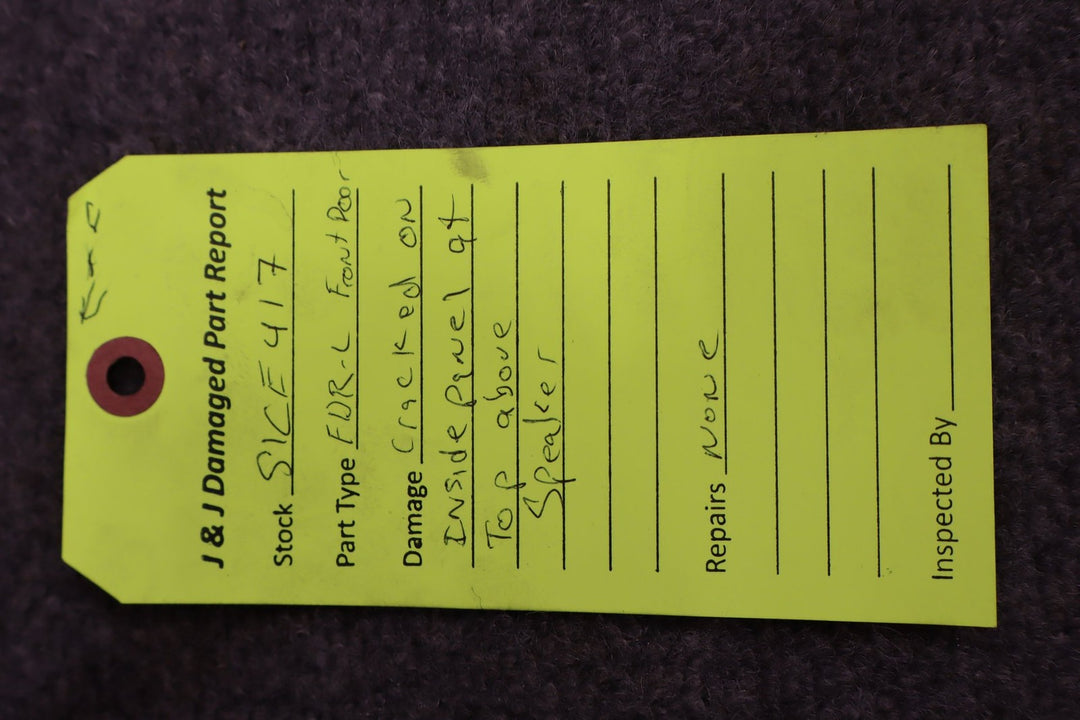 J & J Damaged Part Report
Stock SICE417
Part Type FDR-L Front Door
Damage Cracked on
Inside panel at
Top above
Speaker
Repairs None
Inspected By